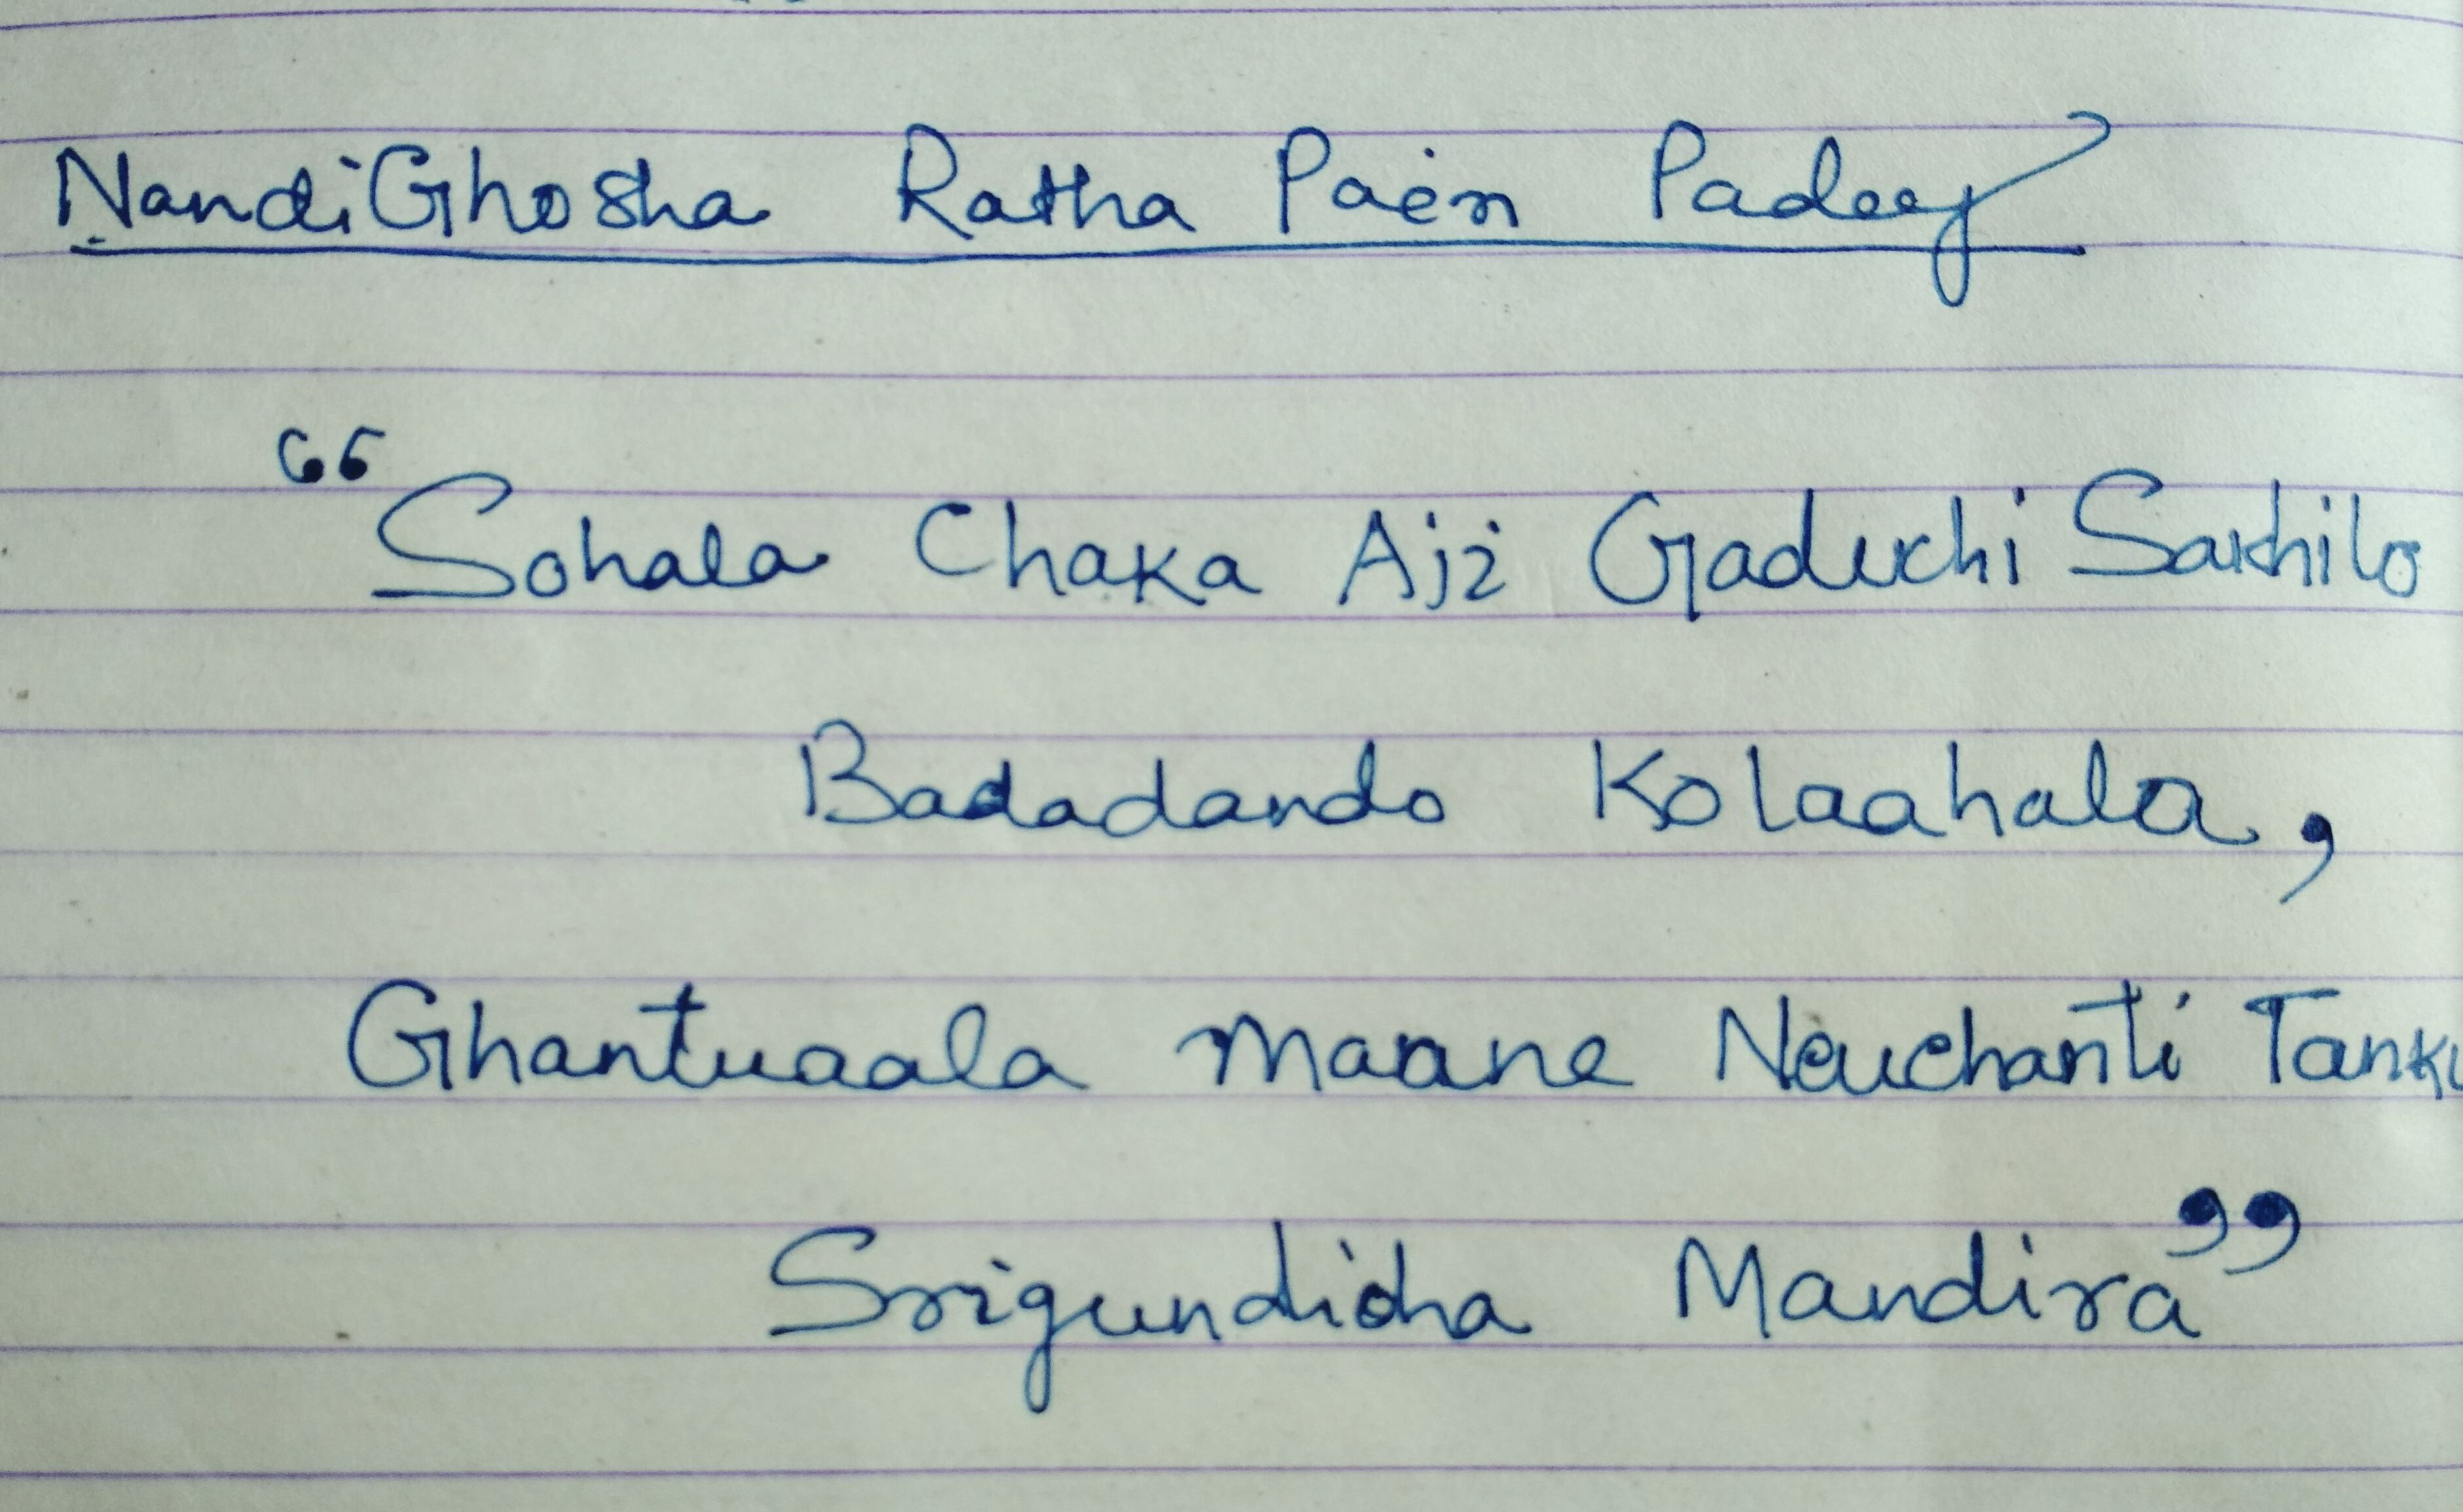 NandiGhosha Ratha Paen Padey
“Sohala Chaka Aji Gaduchi Sakhilo
Badadando Kolaahala,
Ghantuaala Maane Nauchanti Tanku
Srigundicha Mandira”